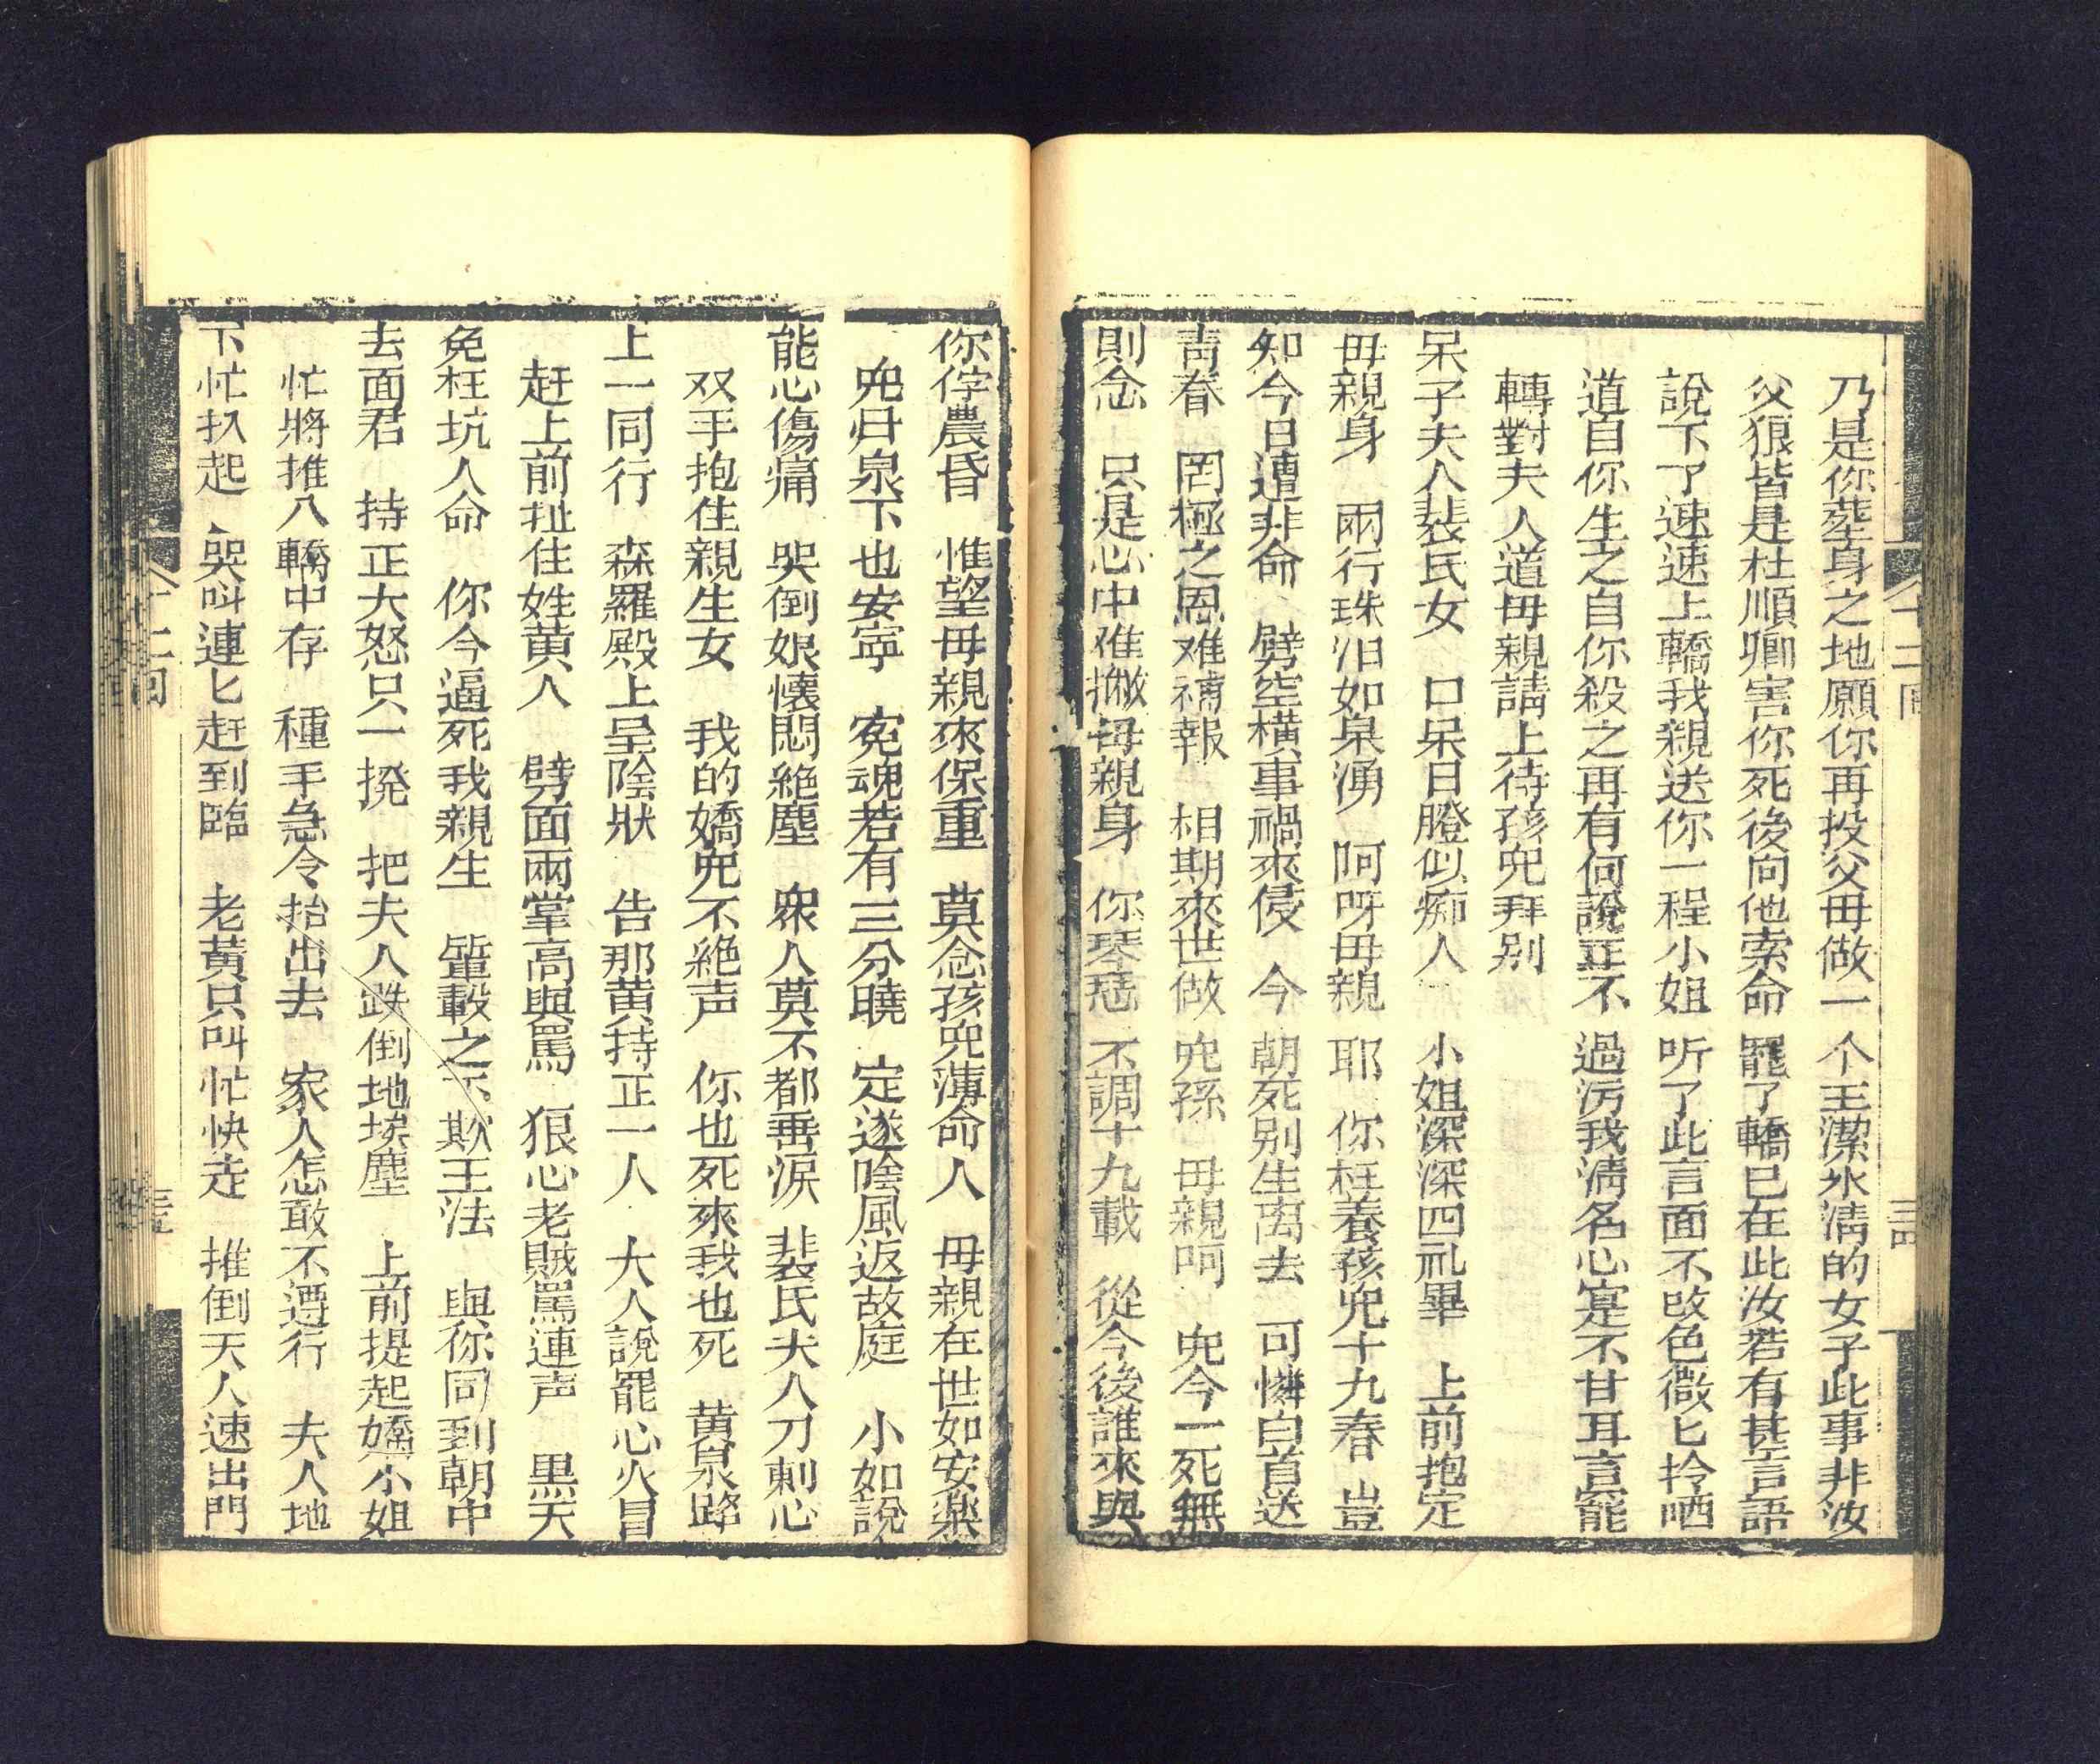 乃是你葬身之地願你再投父母做一个玉潔氷清的女子此事非汝
父狠皆是杜順卿害你死後向他索命罷了轎巳在此汝若有甚言語
說下了速速上轎我親送你一程小姐听了此言面不改色微匕冷哂
道自你生之自你殺之再有何說正不過汚我淸名心寔不甘耳言罷
轉對夫人道毋親請上待孩兒拜别
呆子夫人裴氏女　口呆目瞪似痴人　小姐深深四礼畢　上前抱定
毋親身　兩行珠泪如泉湧　阿呀毋親耶　你枉養孩兒十九春　豈
知今日遭非命　劈空橫事禍來侵　今朝死别生离去　可憐白首送
靑春　罔極之恩难補報　相期來世做兒孫　毋親呵　兒今一死無
則念　只是心中难撇毋親身　你琴瑟不調十九載　從今後誰來與
十二回
三四
你侍農昏　惟望毋親來保重　莫念孩兒薄命人　毋親在世如安樂
兒归泉下也安寧　寃魂若有三分曉　定遂陰風返故庭　小如說
能心傷痛　哭倒娘懐悶絶塵　衆人莫不都垂淚　裴氏夫人刀刺心
双手抱住親生女　我的嬌兒不絶声　你也死來我也死　黃泉路
上一同行　森羅殿上呈陰狀　告那黄持正一人　大人說罷心火冒
赶上前扯住姓黄人　劈面兩掌高與罵　狠心老賊罵連声　黒天
免枉坑人命　你今逼死我親生　輦轂之下欺王法　與你同到朝中
去面君　持正大怒只一撓　把夫人跌倒地埃塵　上前提起嬌小姐
忙將推入轎中存　種手急令抬出去　家人怎敢不遵行　夫人地
下忙扒起　哭叫連匕赶到臨　老黃只叫忙快走　推倒天人速出門
十二回
三五